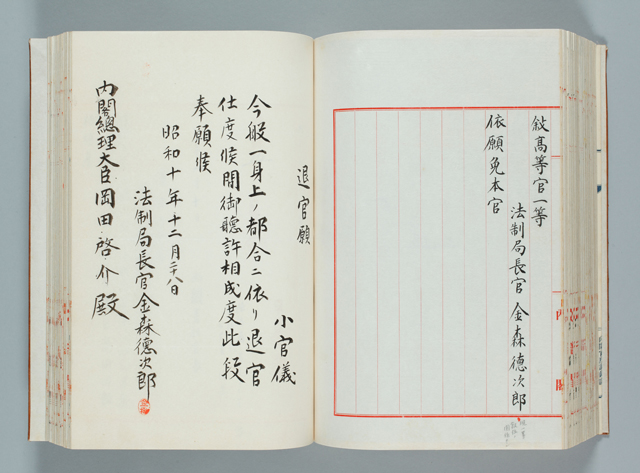 敍高等官一等
法制局長官 金森德次郎
依願免本官
退官願
小官儀
今般一身上ノ都合ニ依リ退官
仕度候間御聽許相成度此段
奉願候
昭和十年十二月二十八日
法制局長官金森德次郎
内閣總理大臣岡田啓介殿